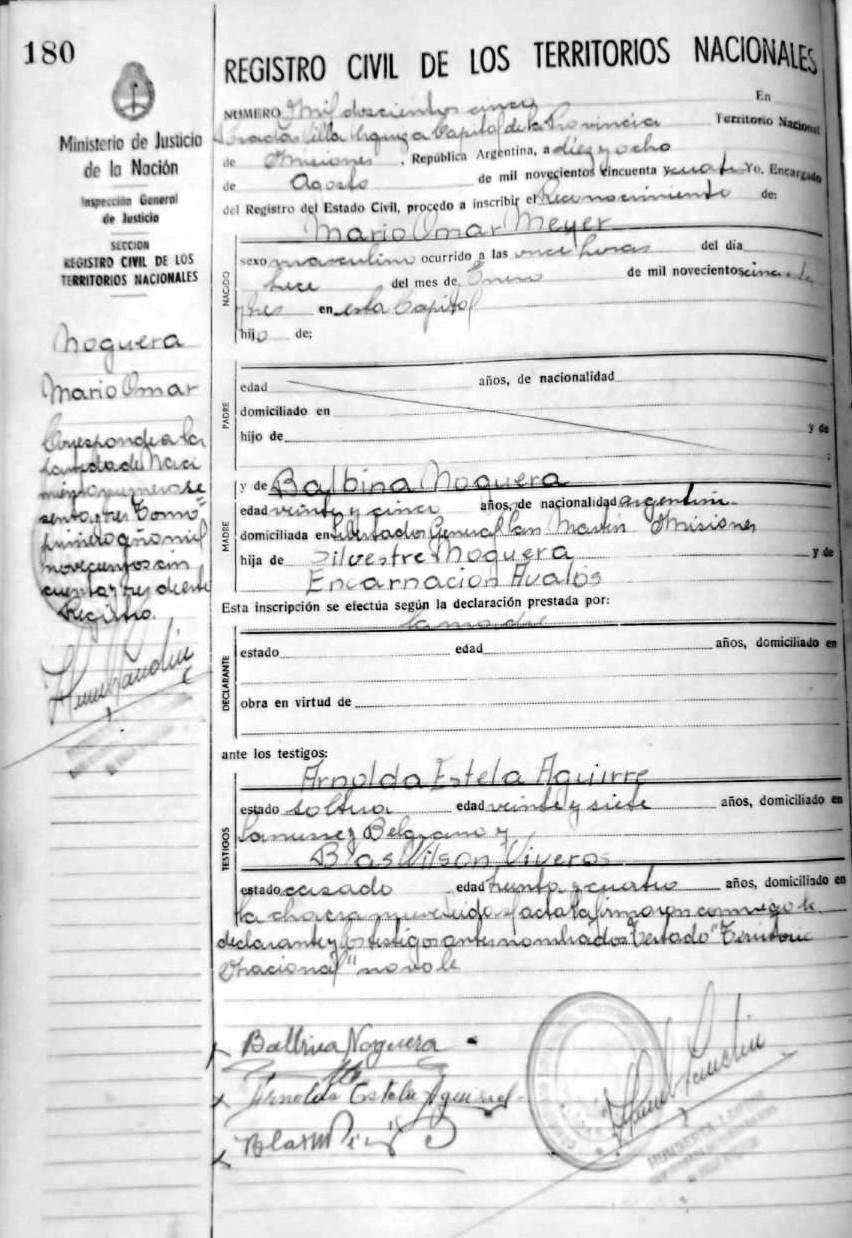 180
Ministerio de Justicia
de la Nación
Inspección General
de Justicia
SECCION
REGISTRO CIVIL DE LOS
TERRITORIOS NACIONALES
Noguera
Mario Omar
Corresponde a la
de Naci
miento numero se
senta y tres Tomo
primero año mil
novecientos cin
cuenta y tres de este
Registro.
REGISTRO CIVIL DE LOS TERRITORIOS NACIONALES
NUMERO Mil doscientos cinco En
Posadas Villa Urquiza Capital de la Provincia Territorio Nacional
de Misiones , República Argentina, a diez y ocho
de Agosto de mil novecientos cincuenta y cuatro Yo, Encargado
del Registro del Estado Civil, procedo a inscribir el Reconocimiento de:
Mario Omar Meyer
NACIDO
sexo masculino ocurrido a las once horas del día
trece del mes de Enero de mil novecientos cincuenta
y tres en esta Capital
hijo de;
PADRE
edad años, de nacionalidad
domiciliado en
hijo de y de
;
MADRE
y de Balbina Noguera
edad veinty cinco años, de nacionalidad argentina
domiciliada en Libertador General San Martin Misiones
hija de Silvestre Noguera y de
Encarnacion Avalos
Esta inscripción se efectúa según la declaración prestada por:
la madre
DECLARANTE
estado edad años, domiciliado en
obra en virtud de
ante los testigos:
TESTIGOS
Arnolda Estela Aguirre
estado soltera edad veinte y siete años, domiciliado en
Lanusse y Belgrano y
Blas Wilson Viveros
estado casado edad treinta y cuatro años, domiciliado en
la chacra acta la firmaron conmigo la
declarante y los testigos antes nombrados Testado "Territorio
Nacional" no vale
Balbina Noguera
Arnolda Estela Aguirre